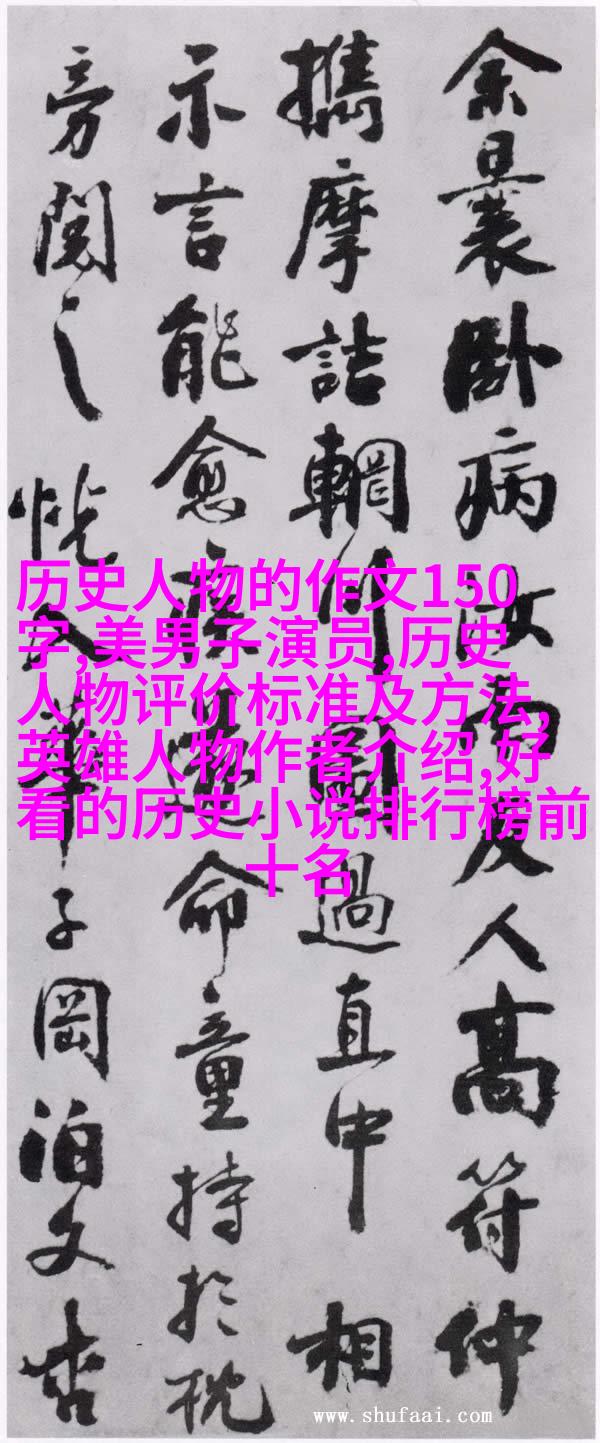 余曩卧病汝南友人高符仲
攜摩詰輞川圖過直中相
示言能愈疾遂命童持於枕
旁閱之恍入華子岡泊文杏
历史人物的作文150
字,美男子演员,历史
人物评价标准及方法,
英雄人物作者介绍,好
看的历史小说排行榜前
十名
www.shufaai.com